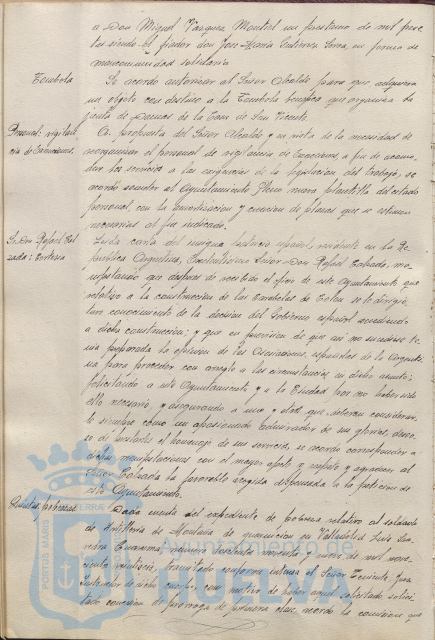 a Don Miguel Vázquez Montiel un prestamo de mil pese
tas siendo el fiador don Jose Maria Gutierrez Serra, en forma de
mancomunidad solidaria
Tombola
Se acordo autorizar al Señor Alcalde para que adquiera
un objeto con destino a la Tombola benefica que organiza la
Junta de Damas de la Casa de San Vicente.
Personal: vigilan
cia de Exacciones.
A propuesta del Señor Alcalde y en vista de la necesidad de
reorganizar el personal de vigilancia de Exacciones a fin de acomo
dar los servicios a las exigencias de la legislacion del trabajo, se
acordo someter al Ayuntamiento Pleno nueva plantilla del citado
personal, con la amortizacion y creacion de plazas que se estimen
necesarias al fin indicado.
Sr. Don Rafael Cal
zada: Cortesia
Leida carta del insigne patricio español residente en la Re
publica Argentina, Excelentisimo Señor Don Rafael Calzada, ma
nifestando que despues de recibido el oficio de este Ayuntamiento que
relativo a la construccion de las Carabelas de Colon se le dirigio
tuvo conocimiento de la decision del Gobierno español accediendo
a dicha construccion; y que en prevision de que asi no sucediese te
nia preparada la opinion de las Asociaciones españolas de la Argenti
na para proceder con arreglo a las circunstancias en dicho asunto;
felicitando a este Ayuntamiento y a la Ciudad por no haber sido
ello necesario, y asegurando a una y otro que deberan considerar
le siempre como un apasionado admirador de sus glorias, deseo
so de prestarles el homenaje de sus servicios, se acordo corresponder a
dichas manifestaciones con el mayor afecto y respeto y agradecer al
Señor Calzada la favorable acogida dispensada a la peticion de
este Ayuntamiento.
Quintas: prorrogas
Dada cuenta del expediente de pobreza relativo al soldado
de Artilleria de Montaña de guarnicion en Valladolid Luis
numero trescientos noventa y nueve de mil nove
cientos veintiseis, tramitado conforme interesa el Señor Teniente Juez
Instructor de dicho cuerpo, con motivo de haber aquel soldado solici
tado concesion de prorroga de primera clase acordo la comision que
PORTUS MARIS
TERRAE
Ayuntamiento de
HUELVA